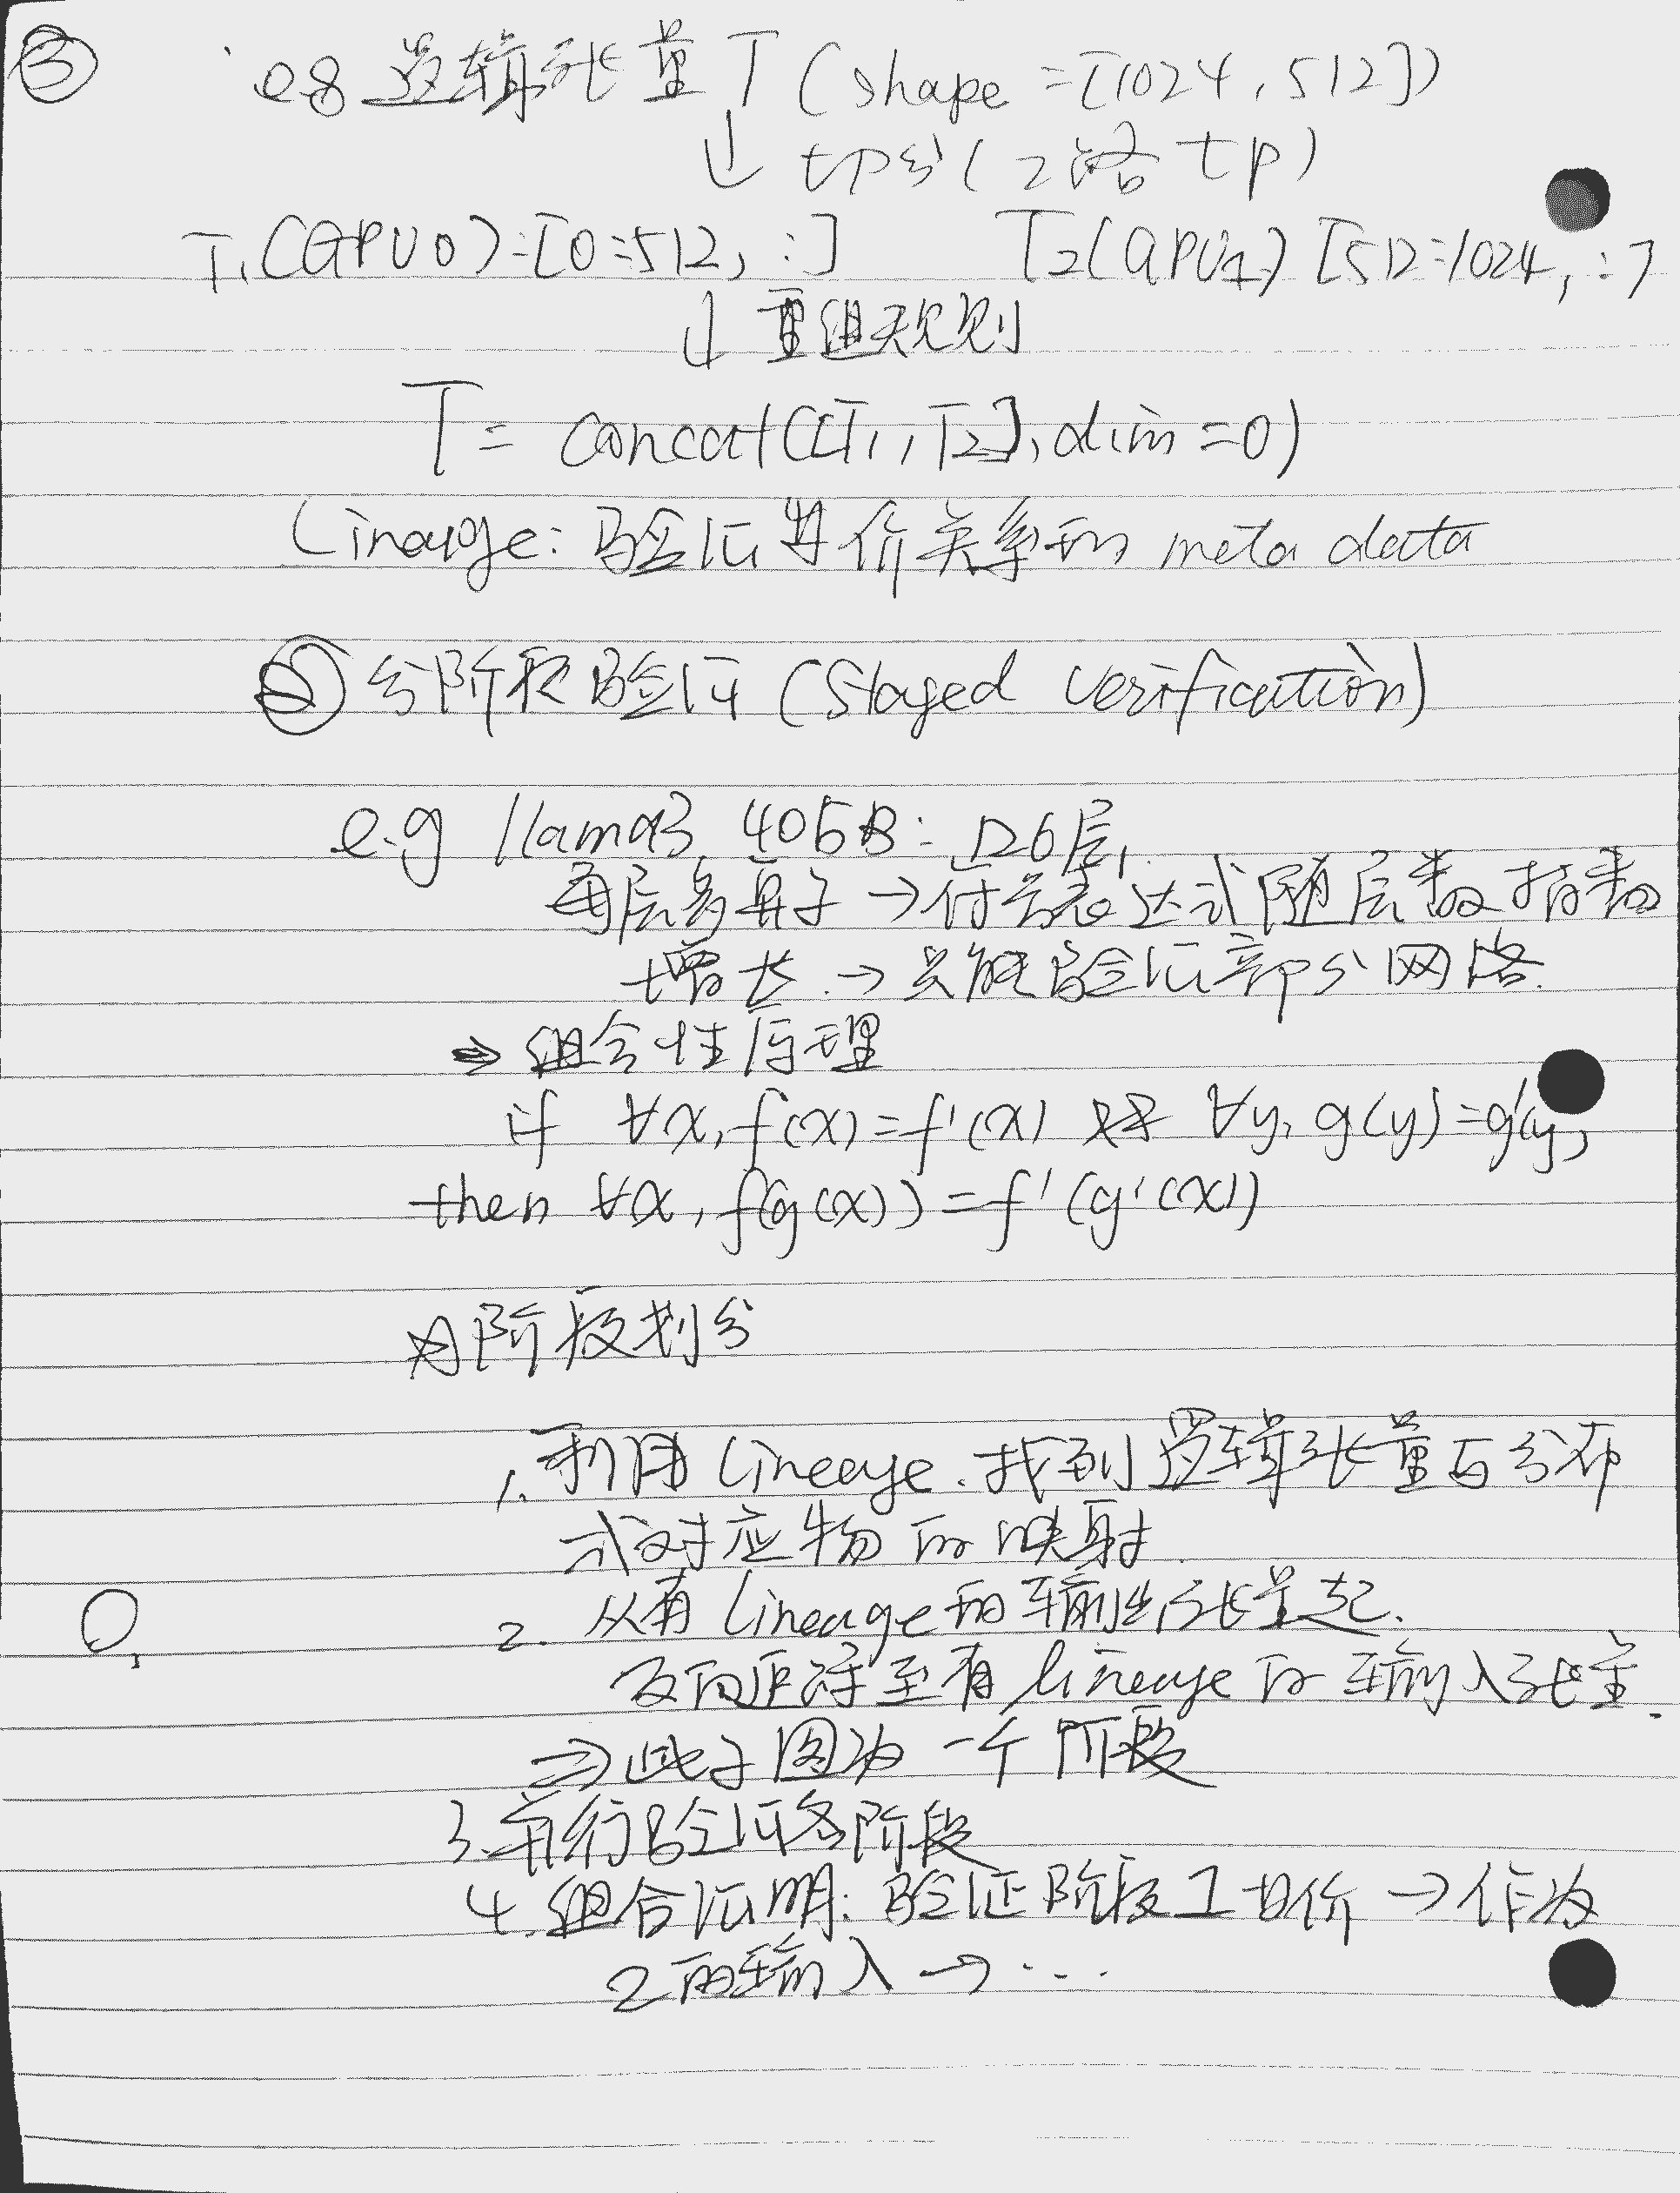 ③
e.g 逻辑张量 T (shape = [1024, 512])
↓ 切分 (2路 tp)
T₁(GPU0)=[0:512, :] T₂(GPU1) [512:1024, :]
↓ 重组规则
T = concat([T₁, T₂], dim=0)
Lineage: 验证等价关系的 meta data
② 分阶段验证 (Staged verification)
e.g llama3 405B: 126层,
每层多算子 → 符号表达式随层数指数
增长 → 只能验证部分网络.
⇒ 组合性原理
if ∀x, f(x)=f'(x) && ∀y, g(y)=g'(y)
then ∀x, f(g(x))=f'(g'(x))
阶段划分
1. 利用 Lineage. 找到逻辑张量与分布
式对应物的映射.
2. 从有 Lineage 的输出张量起.
反向追踪至有 lineage 的输入张量.
⇒ 此子图为一个阶段
3. 并行验证各阶段
4. 组合证明: 验证阶段1等价 → 作为
2的输入 → ...